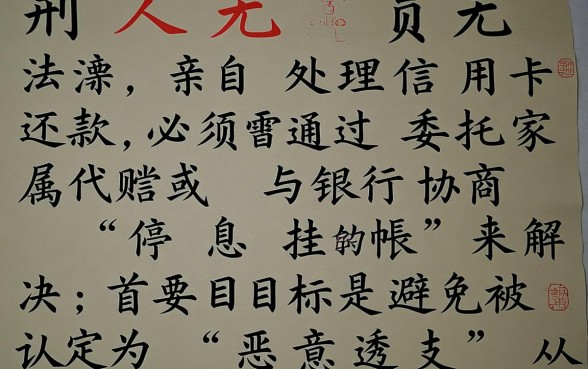 刑人无 员无
法溧，亲自 处理信用卡
还款，必须雷通过 委托家
属代赡或 与银行协商
“停 息 挂的帳”来解
决；首要目目标是避免被
认定为 “恶意透支” 从